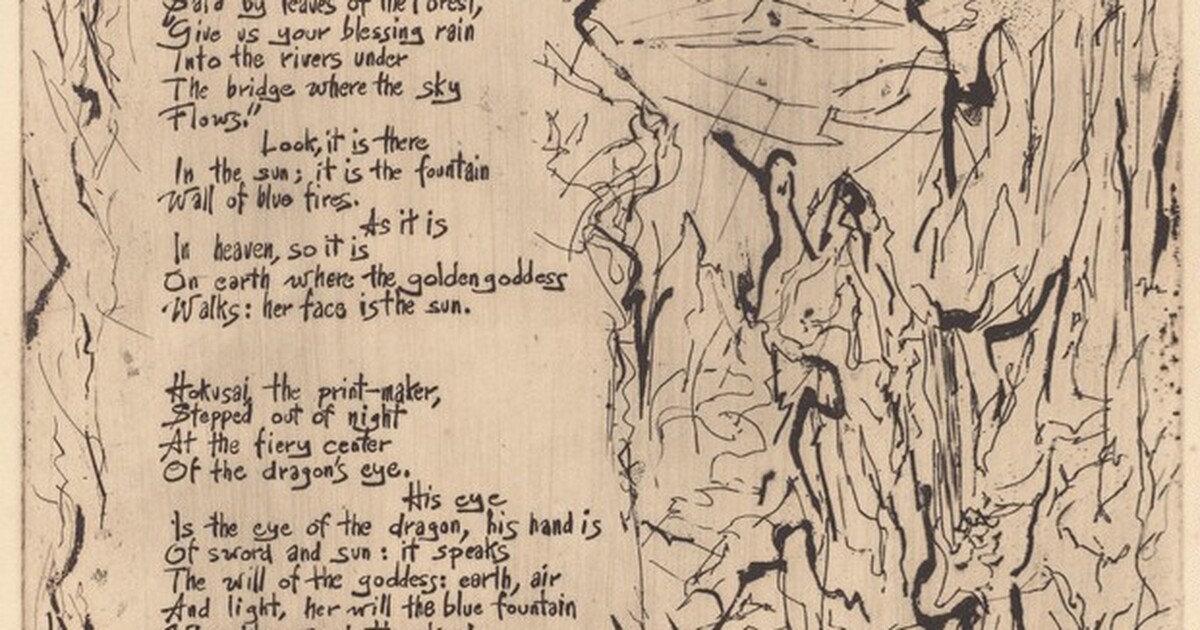 Said by leaves of the forest,
"Give us your blessing rain
Into the rivers under
The bridge where the sky
Flows."
Look, it is there
In the sun; it is the fountain
Wall of blue fires.
As it is
In heaven, so it is
On earth where the golden goddess
Walks: her face is the sun.
Hokusai, the print-maker,
Stepped out of night
At the fiery center
Of the dragon's eye.
His eye
Is the eye of the dragon, his hand is
Of sword and sun: it speaks
The will of the goddess: earth, air
And light, her will the blue fountain